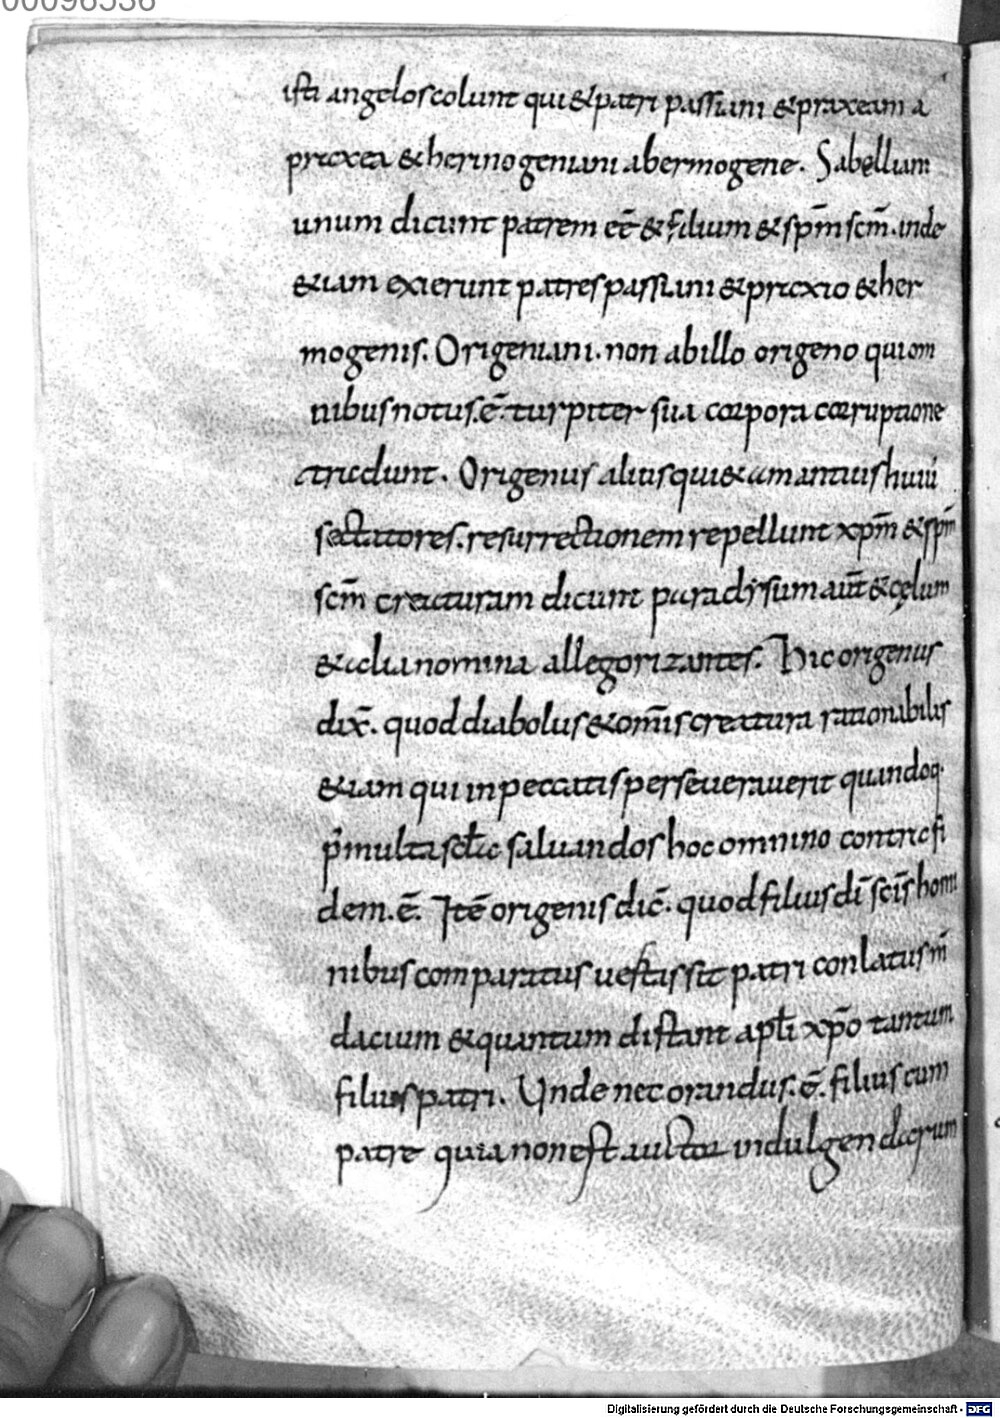 00096536
isti angelos colunt qui & patri passiani & praxeam a
praxea & hermogeniani abermogene. Sabellium
unum dicunt patrem eē & filium & sp̄m sc̄m. inde
&iam exierunt patres passiani & praxio & her
mogenis. Origeniani. non abillo origeno qui om
nibus notus. ē. turpiter sua corpora corruptione
tradunt. Origenus alius qui & amantius huiū
sectatores. resurrectionem repellunt xp̄m & sp̄m
sc̄m creaturam dicunt paradysum aūt & cęlum
& alia nomina allegorizantes. Hic origenus
dix̄. quod diabolus & om̄is creatura rationabilis
&iam qui in peccatis perseueraverit quandoq·
p̄ multa scłа saluandos hoc omnino contra fi
dem. ē. Itē origenis dic̄. quod filius dī sc̄is homi
nibus comparatus patri conlatus m̄
dacium & quantum distant apłi xp̄o tantum
filius patri. Unde nec orandus. ē. filius cum
patre quia non est auctor indulgendarum
Digitalisierung gefördert durch die Deutsche Forschungsgemeinschaft - DFG